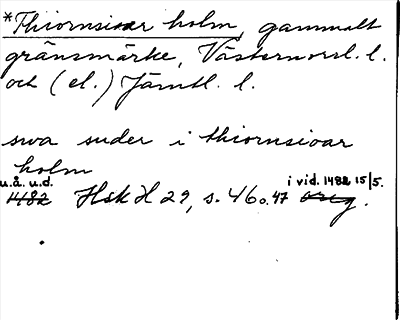 *Thiornsioar holm, gammalt
gränsmärke, Västernorrl. l.
och (el.) Jämtl. l.
swa suder i thiornsioar
holm
u.å. u.d. i vid. 1482 15/5.
1482 HSkH 29, s. 46 o. 47 orig.